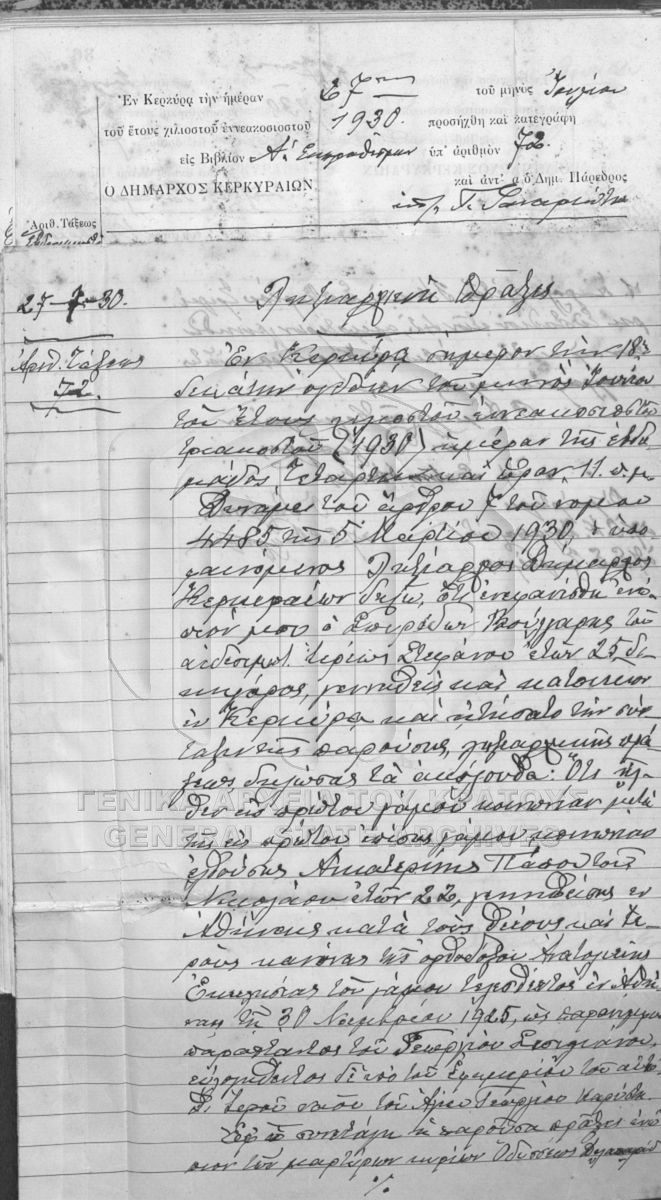 Ἐν Κερκύρᾳ τὴν ἡμέραν 27ην τοῦ μηνὸς Ἰουλίου
τοῦ ἔτους χιλιοστοῦ ἐννεακοσιοστοῦ 1930. προσήχθη καὶ κατεγράφη
εἰς Βιβλίον Α. ὑπ' ἀριθμὸν 72.
Ο ΔΗΜΑΡΧΟΣ ΚΕΡΚΥΡΑΙΩΝ
καὶ ἀντ' α ὁ Δημ. Πάρεδρος
Ἀριθ. Τάξεως
27-7-30.
Ληξιαρχική Πρᾶξις
Ἀριθ. τάξεως
72.
Ἐν Κερκύρᾳ, σήμερον τὴν 18ην
δεκάτην ὀγδόην τοῦ μηνὸς Ἰουνίου
τοῦ ἔτους χιλιοστοῦ ἐννεακοσιοστοῦ
τριακοστοῦ (1930) ἡμέραν τῆς ἑβδο
μάδος Τετάρτην καὶ ὥραν 11. π.μ.
Δυνάμει τοῦ ἄρθρου 7 τοῦ νόμου
4485 τῆς 5 Μαρτίου 1930, ὁ ὑπο
φαινόμενος Ληξίαρχος Δήμαρχος
Κερκυραίων δηλῶ, ὅτι ἐνεφανίσθη ἐνώ
πιόν μου ὁ Σπυρίδων Βούλγαρης τοῦ
αἰδεσιμ. ἱερέως Στεφάνου ἐτῶν 25, δι
κηγόρος, γεννηθεὶς καὶ κατοικῶν
ἐν Κερκύρᾳ καὶ ᾐτήσατο τὴν σύν
ταξιν τῆς παρούσης ληξιαρχικῆς πρά
ξεως δηλώσας τὰ ἀκόλουθα: Ὅτι ἦλ
θεν εἰς πρώτου γάμου κοινωνίαν μετὰ
τῆς εἰς πρώτου ἐπίσης γάμου κοινωνίαν
ἐλθούσης Αἰκατερίνης Πάπου τοῦ
Νικολάου ἐτῶν 22, γεννηθείσης ἐν
Ἀθήναις κατὰ τοὺς θείους καὶ ἱε
ροὺς κανόνας τῆς ὀρθοδόξου Ἀνατολικῆς
Ἐκκλησίας τοῦ γάμου τελεσθέντος ἐν Ἀθή
ναις τῇ 30 Νοεμβρίου 1925, ὡς παρανύμφου
παραστάντος τοῦ Γεωργίου
εὐλογηθέντος δὲ ὑπὸ τοῦ Ἐφημερίου τοῦ αὐτό
θι ἱεροῦ ναοῦ τοῦ Ἁγίου Γεωργίου Καρύτση.
Ἐφ' ᾧ συνετάγη ἡ παροῦσα πρᾶξις ἐνώ
πιον τῶν μαρτύρων κυρίων Ὀδυσσέως
./.
ΓΕΝΙΚΑ ΑΡΧΕΙΑ ΤΟΥ ΚΡΑΤΟΥΣ
GENERAL STATE ARCHIVES